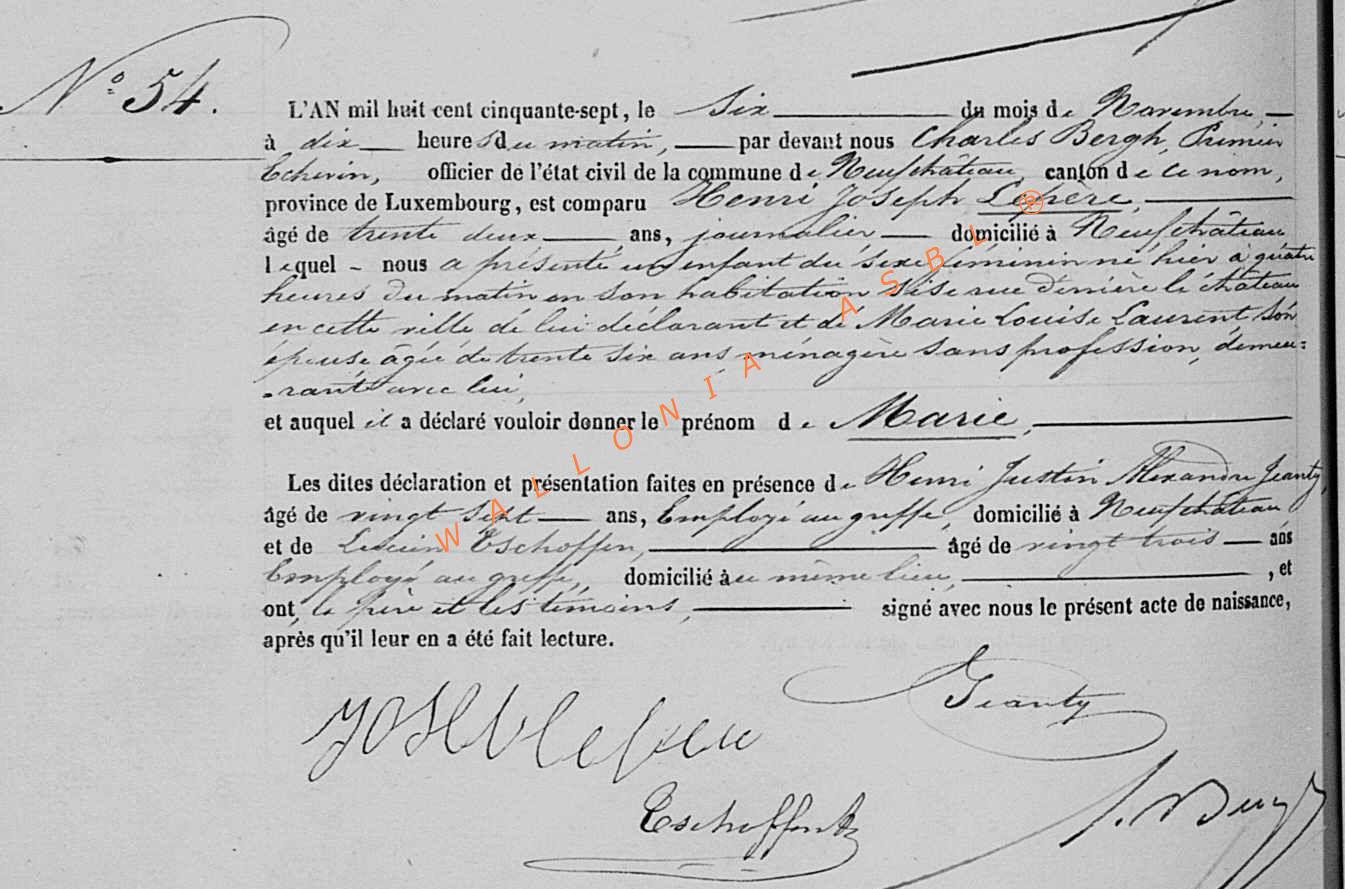 N° 54.
L'AN mil huit cent cinquante-sept, le six du mois de Novembre,
à dix heures du matin, par devant nous Charles Bergh, Premier
Echevin, officier de l'état civil de la commune de Neufchâteau, canton de ce nom,
province de Luxembourg, est comparu Henri Joseph Lepère,
âgé de trente deux ans, journalier domicilié à Neufchâteau
lequel nous a présenté un enfant du sexe féminin né hier à quatre
heures du matin en son habitation sise rue derrière le château
en cette ville de lui déclarant et de Marie Louise Laurent son
épouse âgée de trente six ans ménagère sans profession, demeu=
rant avec lui,
et auquel il a déclaré vouloir donner le prénom de Marie,
Les dites déclaration et présentation faites en présence de Henri Justin Alexandre Jeanty,
âgé de vingt sept ans, Employé au greffe, domicilié à Neufchâteau
et de Lucien Eschoffen, âgé de vingt trois ans
Employé au greffe, domicilié au même lieu, , et
ont, le père et les témoins, signé avec nous le présent acte de naissance,
après qu'il leur en a été fait lecture.
Jeanty
WALLONIA ASBL